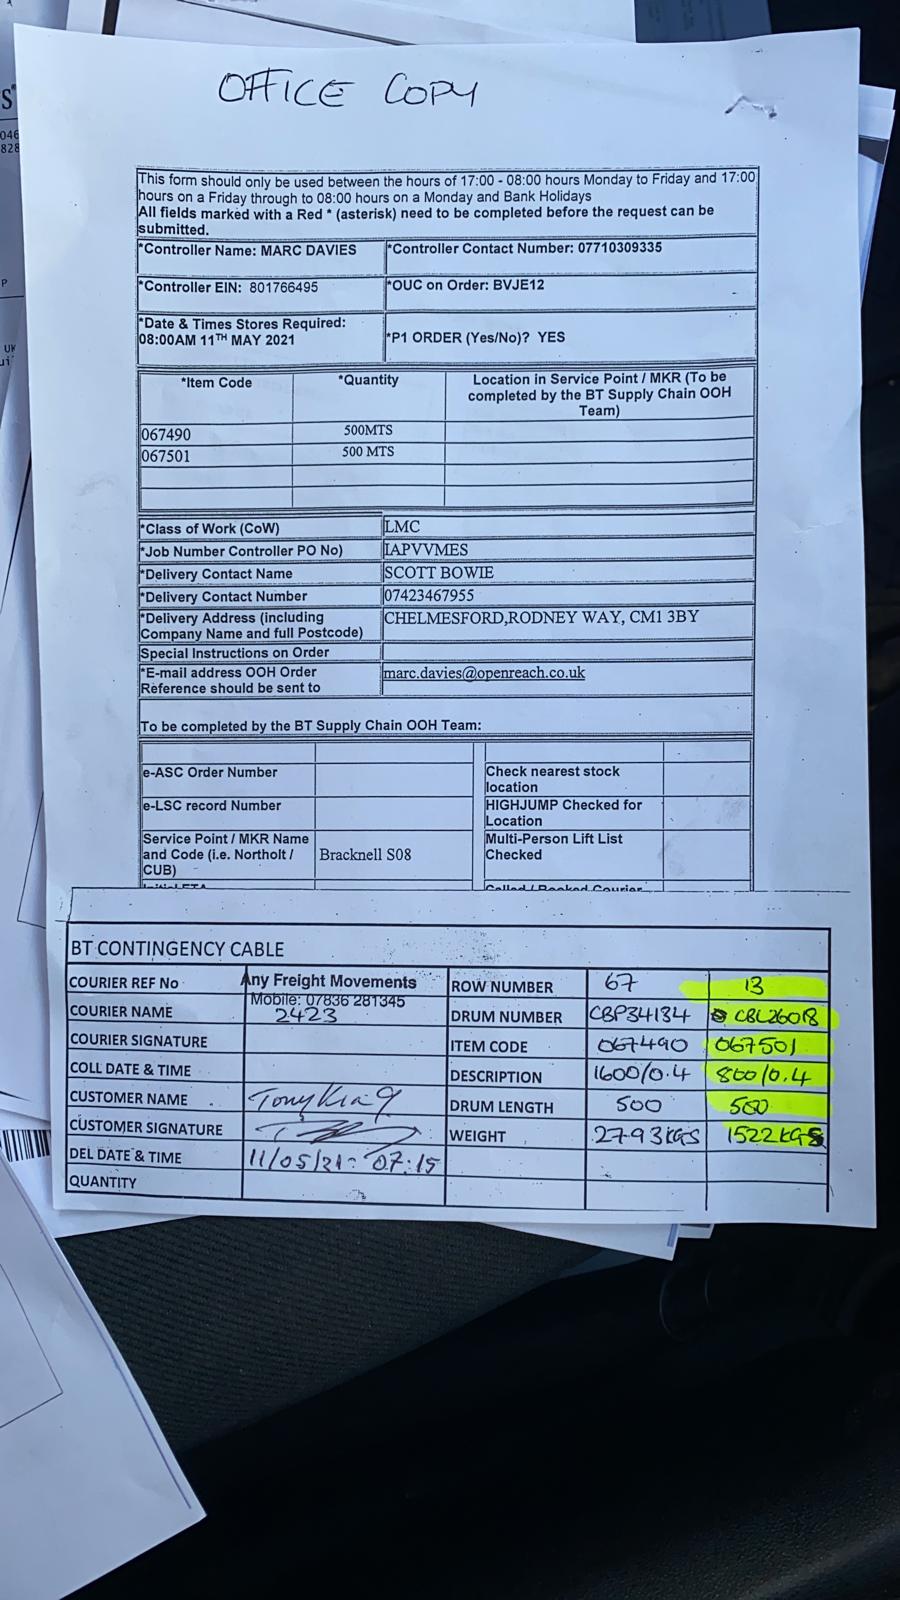 OFFICE COPY
This form should only be used between the hours of 17:00 - 08:00 hours Monday to Friday and 17:00
hours on a Friday through to 08:00 hours on a Monday and Bank Holidays
All fields marked with a Red * (asterisk) need to be completed before the request can be
submitted.
*Controller Name: MARC DAVIES *Controller Contact Number: 07710309335
*Controller EIN: 801766495 *OUC on Order: BVJE12
*Date & Times Stores Required:
08:00AM 11TH MAY 2021 *P1 ORDER (Yes/No)? YES
*Item Code *Quantity Location in Service Point / MKR (To be
completed by the BT Supply Chain OOH
Team)
067490 500MTS
067501 500 MTS
*Class of Work (CoW) LMC
*Job Number Controller PO No) IAPVVMES
*Delivery Contact Name SCOTT BOWIE
*Delivery Contact Number 07423467955
*Delivery Address (including CHELMESFORD,RODNEY WAY, CM1 3BY
Company Name and full Postcode)
Special Instructions on Order
*E-mail address OOH Order marc.davies@openreach.co.uk
Reference should be sent to
To be completed by the BT Supply Chain OOH Team:
e-ASC Order Number Check nearest stock
location
e-LSC record Number HIGHJUMP Checked for
Location
Service Point / MKR Name Multi-Person Lift List
and Code (i.e. Northolt / Bracknell S08 Checked
CUB)
BT CONTINGENCY CABLE
COURIER REF No Any Freight Movements ROW NUMBER 67 13
Mobile: 07836 281345
COURIER NAME 2423 DRUM NUMBER CBP34134 CBL26018
COURIER SIGNATURE ITEM CODE 067490 067501
COLL DATE & TIME DESCRIPTION 1600/0.4 800/0.4
CUSTOMER NAME Tony King DRUM LENGTH 500 500
CUSTOMER SIGNATURE WEIGHT 2793KGS 1522KGS
DEL DATE & TIME 11/05/21 - 07:15
QUANTITY